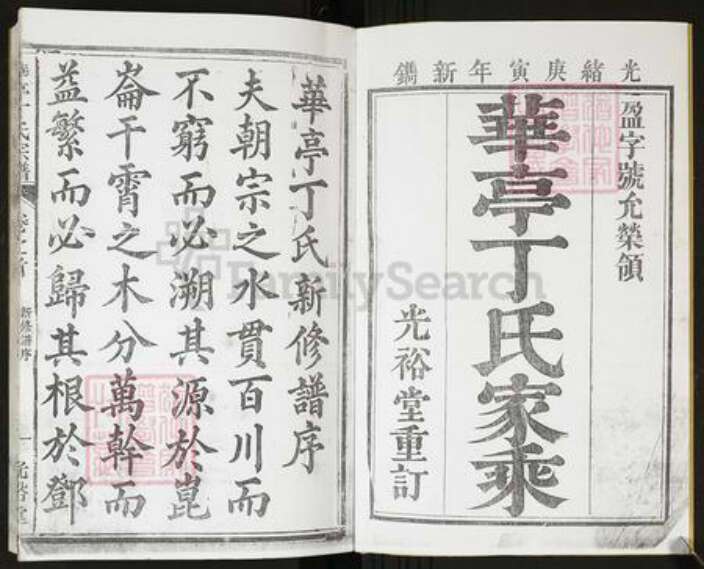 光緒庚寅年新鐫
盈字號允榮領
華亭丁氏家乘
光裕堂重訂
華亭丁氏新修譜序
夫朝宗之水貫百川而
不窮而必溯其源於崑
崙干霄之木分萬幹而
益繁而必歸其根於鄧
氏宗譜
新修譜序
一
光裕堂
FamilySearch